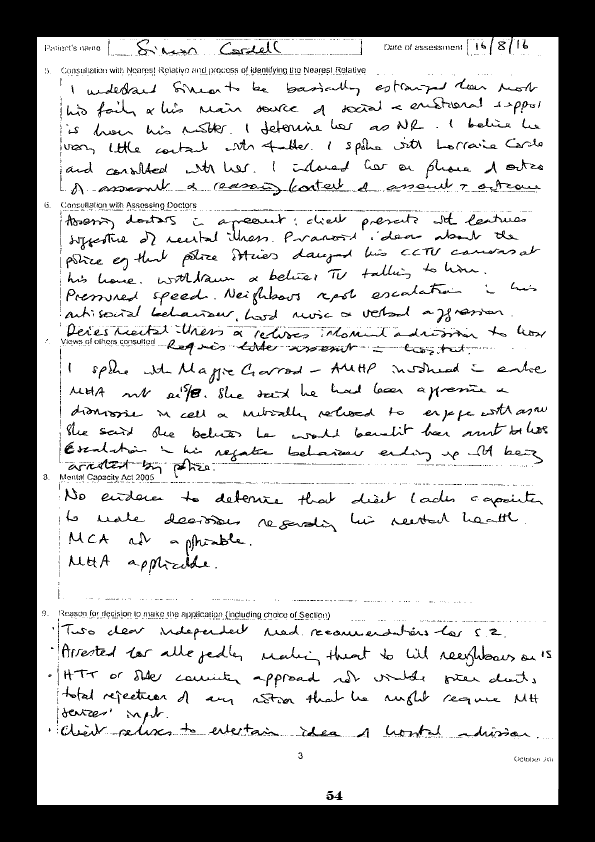 Patient's name Simon Cordell Date of assessment 16/8/16
5. Consultation with Nearest Relative and process of identifying the Nearest Relative
I understand Simon to be basically estranged from most
his family & his main source of social & emotional suppor
is from his mother. I determine her as NR. I believe he
very little contact with father. I spoke with Lorraine Corde
and consulted with her. I informed her on phone of outco
of assessment & reasoning/context of assessmt & outcome
6. Consultation with Assessing Doctors
Assessing doctors in agreement: client presents with features
suggestive of mental illness. Paranoid ideas about the
police eg that police stories damaged his CCTV cameras at
his home. withdrawn & believes TV talking to him.
Pressured speech. Neighbours report escalation in his
antisocial behaviour, loud music & verbal aggression.
Denies mental illness & refuses informal admission to hosp
Requires further assessmt in hospital.
7. Views of others consulted
I spoke with Maggie Garrod - AMHP involved in earlier
MHA on 15/8. She said he had been aggressive &
dismissive in cell & initially refused to engage with assmt
She said she believes he would benefit from
Escalation in his negative behaviour ending up with being
arrested by police.
8. Mental Capacity Act 2005
No evidence to determine that client lacks capacity
to make decisions regarding his mental health.
MCA not applicable.
MHA applicable.
9. Reason for decision to make the application (including choice of Section)
• Two clear independent med. recommendations for S.2.
• Arrested for allegedly making threat to kill neighbours on 15
• HTT or other community approach not viable given client's
total rejection of any notion that he might require MH
services' input.
• Client refuses to entertain idea of hospital admission.
3
October 20
54